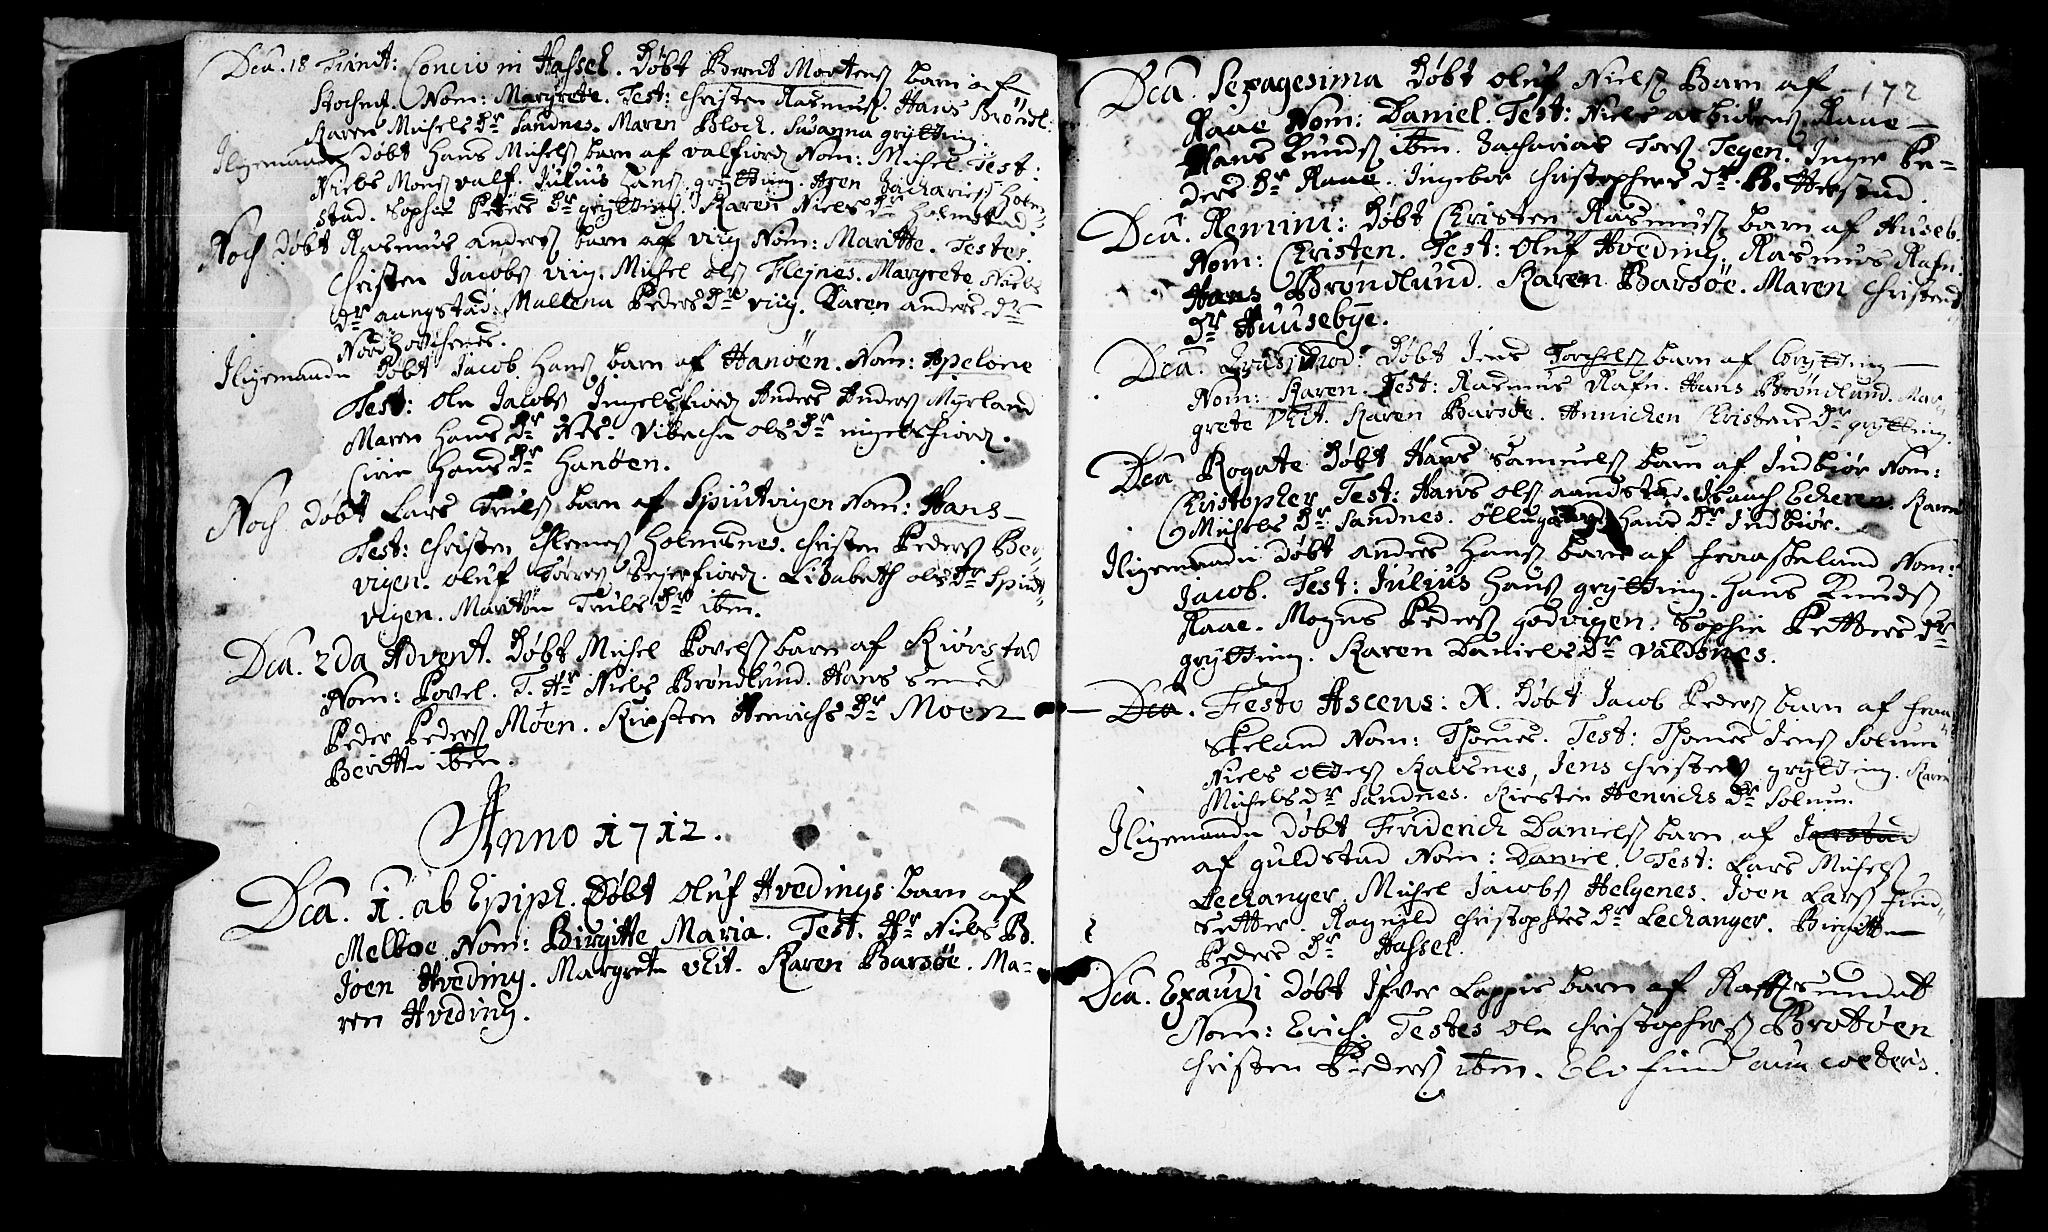 Dca. 18 Trinit: Concio in Hassel. Døbt Bernt Mortens barn af
Stochnes. Nom: Margrete. Test: Christen Rasmus. Hans Brøndl:
Karen Michels Dr Sandnes. Maren Bloch. Susanna grytting.
Iligemaade døbt Hans Michels barn af valfiord Nom: Michel. Test:
Niels Mons valf. Julius Hans grytting. Aren Zacharies Holm-
stad. Sophie Peders Dr grytting. Karen Niels Dr Holmstad.
Noch døbt Rasmus anders barn af viig Nom: Maritte. Testes.
Christen Jacobs viig. Michel ols Flejnes. Margrete Niels
Dr aangstad: Mallena Peders Dr viig. Karen anders Dr
Iligemaade døbt Jacob Hans barn af Hanøen. Nom: Apelone
Test: Ole Jacobs Ingelsfiord Anders Anders Myrland
Maren Hans Dr Nes. Vibeche ols Dr ingelsfiord.
Cirie Hans Dr Hanøen.
Noch døbt Lars Truls barn af Spiutvigen Nom: Hans
Test: Christen Clemes Holmsnes. Christen Peders Ber-
vigen. oluf Torres Sejerfiord. Lisabeth ols Dr Spiut-
vigen. Maritte Truls Dr ibm.
Dca. 2da Advent. Døbt Michel Povels barn af Kiørstad
Nom: Povel. T. Hr Niels Brøndlund. Hans smed
Peder Peders Moen. Kirsten Henrichs Dr Moen
Beritte ibm.
Anno 1712.
Dca. 1. ab Epiph. Døbt Oluf Hvedings barn af
Melboe Nom: Birgitte Maria. Test. Hr Niels B.
Joen Hveding. Margrete Vhit. Karen Barsøe. Ma-
ren Hveding.
172
Dca. Sexagesima Døbt Oluf Niels Barn af
Raae Nom: Daniel. Test: Niels Raae
Hans Knuds ibm. Zacharias Tors Tegen. Inger Pe-
ders Dr Raae. Ingebor Christophers Dr B. Herstad.
Dca. Remini: Døbt Christen Rasmus barn af Huseb.
Nom: Christen. Test: Oluf Hveding. Rasmus Rafn.
Hans Brøndlund. Karen Barsöe. Maren Christens
Dr Huusebye.
Dca. Quasimod: Døbt Jens Torchels barn af Grytting
Nom: Karen. Test: Rasmus Rafn. Hans Brøndlund. Mar-
grete Vhit. Karen Barsøe. Annichen Christens Dr grytting.
Dca Rogate Døbt Hans Samuels barn af Indbiør Nom:
Christopher Test: Hans ols aandstad. Isaach Echeren Karen
Michels Dr Sandnes. Hans Dr Indbiør.
Iligemaade døbt anders Hans barn af fraaskeland Nom:
Jacob. Test: Julius Hans grytting. Hans Knuds
Raae. Mogns Peders godvigen. Sophie Petters Dr
grytting. Karen Daniels Dr Valdsnes.
Dca. Festo Ascens: X. Døbt Jacob Peders barn af fraa-
skeland Nom: Thomes. Test: Thomes Jens Solum
Niels Ottes Kalsnes, Jens Christens grytting. Karen
Michels Dr Sandnes. Kiersten Henrichs Dr Solum.
Iligemaade døbt Friderich Daniels barn af
af guldstad Nom: Daniel. Test: Lars Michels
Lechanger. Michel Jacobs Helgenes. Joen Lars find-
setter. Ragnild Christophers Dr Lechanger. Birgitte
Peders Dr Hassel.
Dca. Exaudi døbt Ifver Lappis barn af Raftsundet
Nom: Erich. Testes Ole Christophers Brotøen
Christen Peders ibm. Ele find cum coeteris.